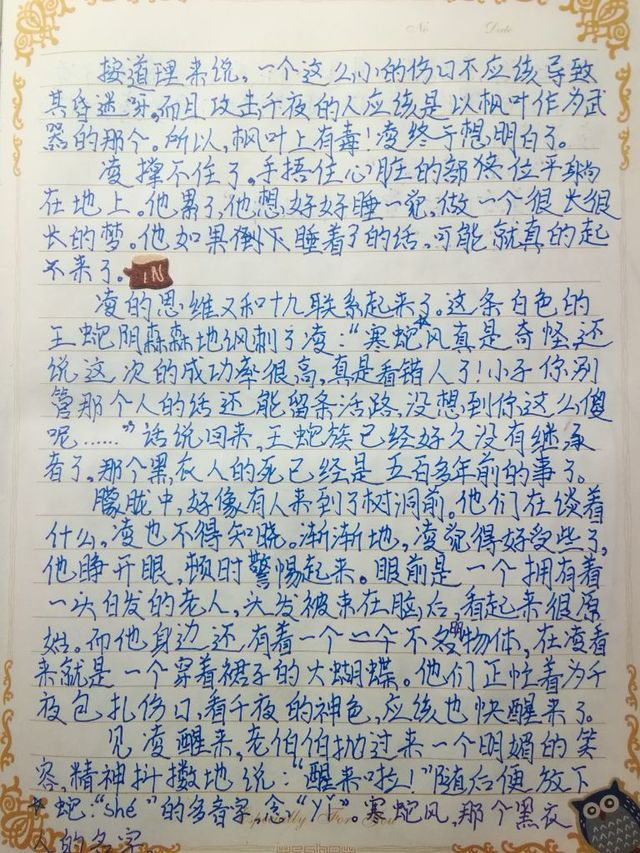 No  Date
按道理来说,一个这么小的伤口不应该导致
其昏迷呀。而且攻击千夜的人应该是以枫叶作为武
器的那个。所以,枫叶上有毒!凌终于想明白了。
凌撑不住了。手捂住心脏的部位平躺
在地上。他累了,他想好好睡一觉,做一个很长很
长的梦。他如果倒下睡着了的话,可能就真的起
不来了。IN
凌的思维又和十九联系起来了。这条白色的
王蛇阴森森地讽刺了凌:“寒蛇*风真是奇怪,还
说这次的成功率很高,真是看错人了!小子你别
管那个人的话还能留条活路,没想到你这么傻
呢……”话说回来,王蛇族已经好久没有继承
者了。那个黑衣人的死已经是五百多年前的事了。
朦胧中,好像有人来到了树洞前。他们在谈着
什么,凌也不得知晓。渐渐地,凌觉得好受些了,
他睁开眼,顿时警惕起来。眼前是一个拥有着
一头白发的老人,头发被束在脑后,看起来很原
始。而他身边还有着一个一个不明物体,在凌看
来就是一个穿着裙子的大蝴蝶。他们正忙着为千
夜包扎伤口,看千夜的神色,应该也快醒来了。
见凌醒来,老伯伯抛过来一个明媚的笑
容,精神抖擞地说:“醒来啦!”随后便放下
* 蛇:“shé”的多音字,念“yí”。寒蛇风,那个黑衣
人的名字。
Specially For You